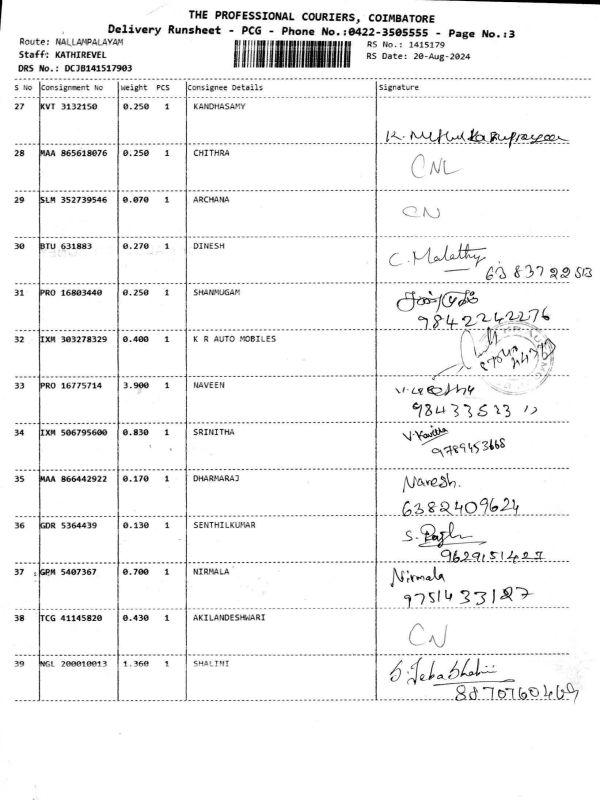 THE PROFESSIONAL COURIERS, COIMBATORE
Delivery Runsheet - PCG - Phone No.:0422-3505555 - Page No.:3
Route: NALLAMPALAYAM RS No.: 1415179
Staff: KATHIREVEL RS Date: 20-Aug-2024
DRS No.: DCJB141517903
S No Consignment No Weight PCS Consignee Details Signature
27 KVT 3132150 0.250 1 KANDHASAMY
K.
28 MAA 865618076 0.250 1 CHITHRA
CNL
29 SLM 352739546 0.070 1 ARCHANA
CN
30 BTU 631883 0.270 1 DINESH
C. Malathy
6383722513
31 PRO 16803440 0.250 1 SHANMUGAM
சண்முகம்
9842242276
32 IXM 303278329 0.400 1 K R AUTO MOBILES
33 PRO 16775714 3.900 1 NAVEEN
98433523 11
34 IXM 506795600 0.830 1 SRINITHA
V. Kavitha
9789453668
35 MAA 866442922 0.170 1 DHARMARAJ
Naresh.
6382409624
36 GDR 5364439 0.130 1 SENTHILKUMAR
S.
9629151427
37 GPM 5407367 0.700 1 NIRMALA
Nirmala
9751433127
38 TCG 41145820 0.430 1 AKILANDESHWARI
CN
39 NGL 200010013 1.360 1 SHALINI
S. Jebashalini
8870760469